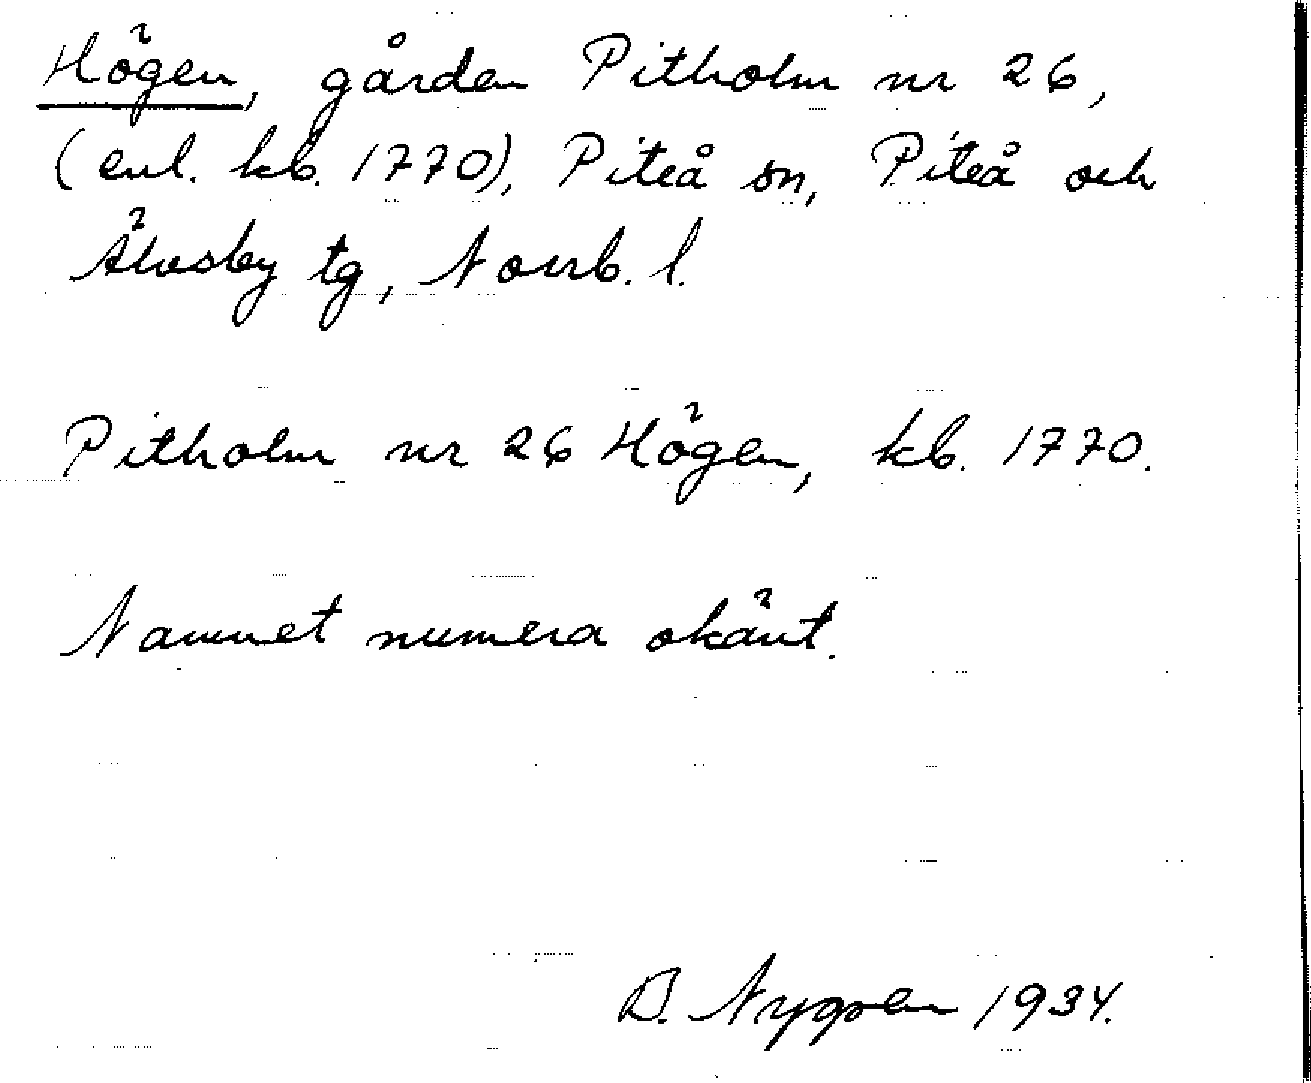 Högen, gården Pitholm nr 26,
(enl. kb. 1770), Piteå sn, Piteå och
Älvsby tg, Norrb. l.
Pitholm nr 26 Högen, kb. 1770.
Namnet numera okänt.
Nygren 1934.